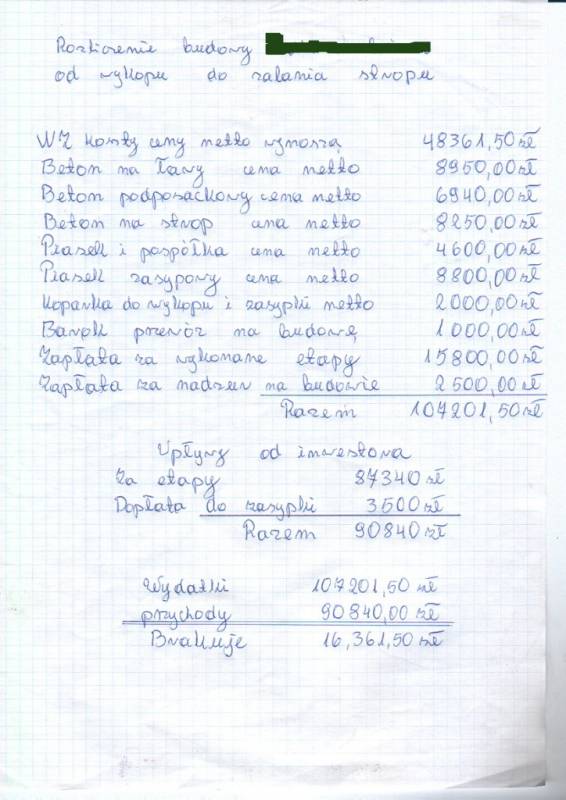 Rozliczenie budowy
od wykopu do zalania stropu
WZ koszty ceny netto wynoszą 48361,50 zł
Beton na ławy cena netto 8950,00 zł
Beton podposadzkowy cena netto 6940,00 zł
Beton na strop cena netto 8250,00 zł
Piasek i pospółka cena netto 4600,00 zł
Piasek zasypowy cena netto 8800,00 zł
Koparka do wykopu i zasypki netto 2000,00 zł
Barak przewóz na budowę 1000,00 zł
Zapłata za wykonane etapy 15800,00 zł
Zapłata za nadzur na budowie 2500,00 zł
Razem 107201,50 zł
Wpływy od inwestora
Za etapy 87340 zł
Dopłata do zasypki 3500 zł
Razem 90840 zł
Wydatki 107201,50 zł
przychody 90840,00 zł
Brakuje 16,361,50 zł